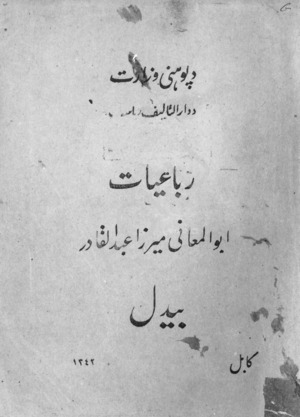 د پوهنی وزارت
د دارالتألیف ریاست
رباعیات
ابوالمعانی میرزا عبدالقادر
بیدل
کابل ۱۳۴۲